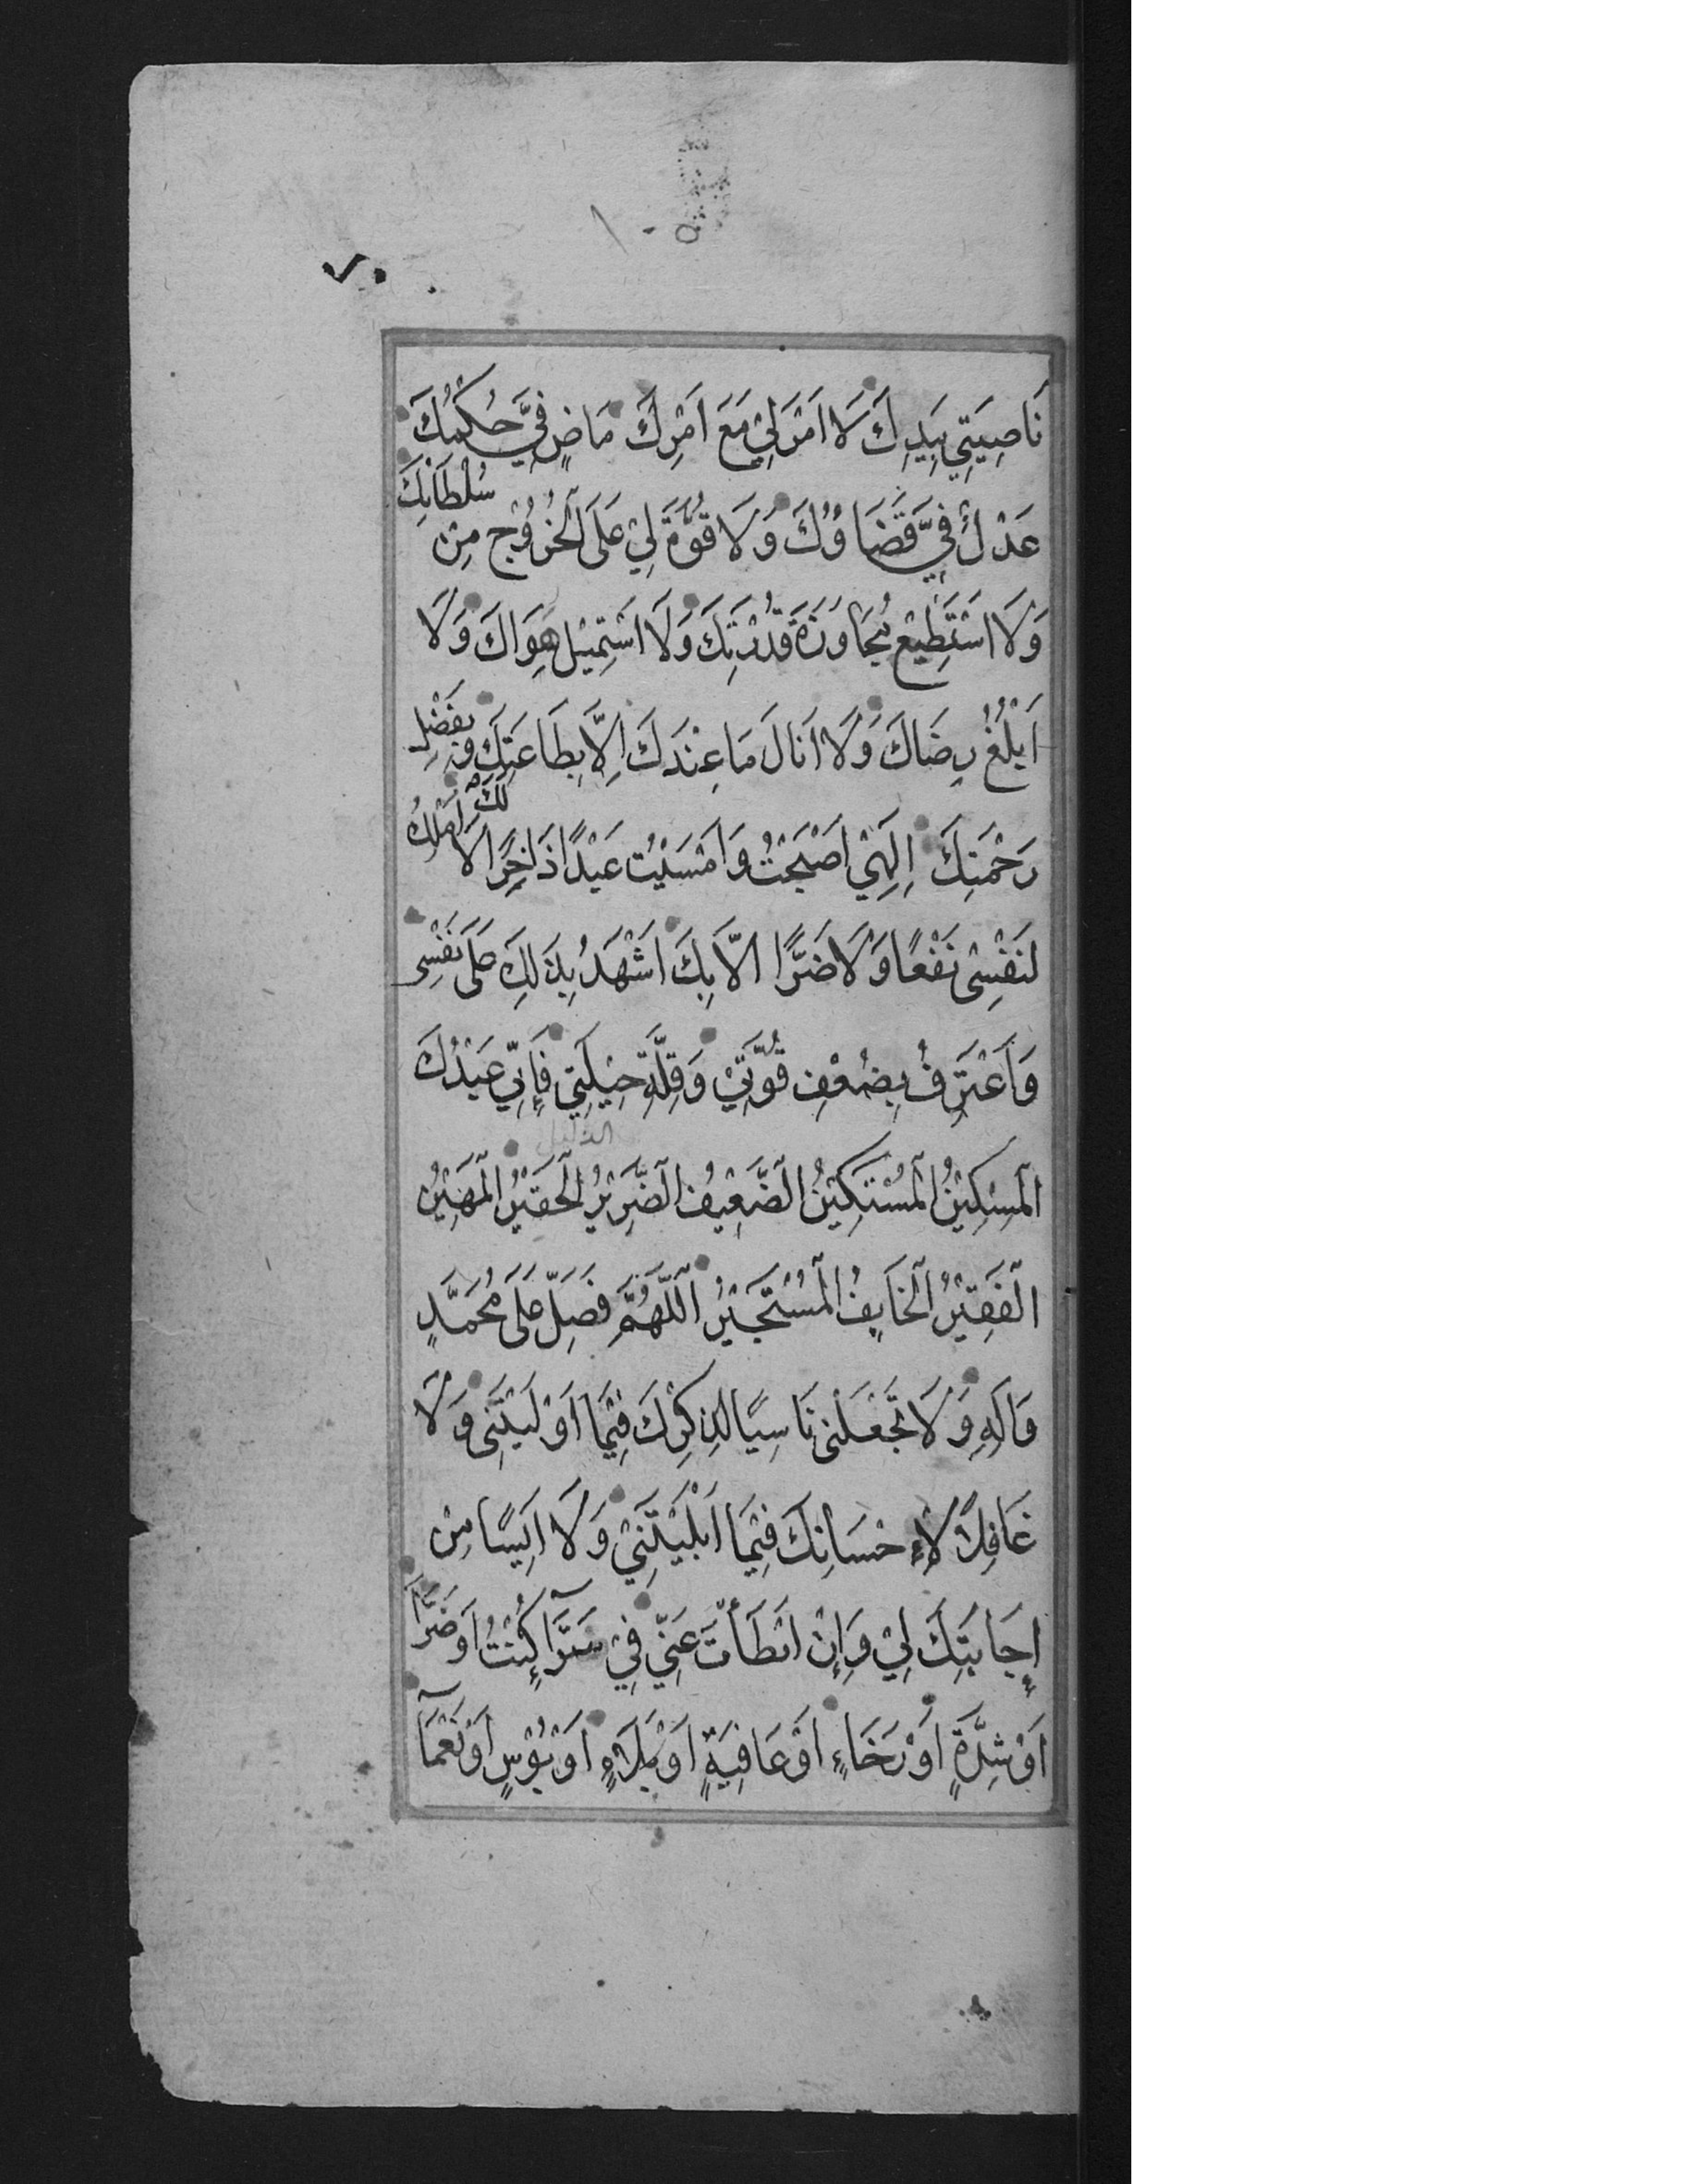 ٧٠
نَاصِيَتِي بِيَدِكَ لَا اَمْرَ لِيْ مَعَ اَمْرِكَ مَاضٍ فِيَّ حُكْمُكَ
عَدْلٌ فِيَّ قَضَاوُكَ وَلَا قُوَّةَ لِيْ عَلَى الْخُرُوْجِ مِنْ سُلْطَانِكَ
وَلَا اَسْتَطِيْعُ مُجَاوَزَةَ قُدْرَتِكَ وَلَا اَسْتَمِيْلُ هَوَاكَ وَلَا
اَبْلُغُ رِضَاكَ وَلَا اَنَالُ مَا عِنْدَكَ اِلَّا بِطَاعَتِكَ وَ بِفَضْلِ
رَحْمَتِكَ اِلٰهِيْ اَصْبَحْتُ وَاَمْسَيْتُ عَبْدًا ذَاخِرًا لَكَ لَا اَمْلِكُ
لِنَفْسِىْ نَفْعًا وَلَا ضَرًّا اِلَّا بِكَ اَشْهَدُ بِذٰلِكَ عَلَى نَفْسِى
وَاَعْتَرِفُ بِضُعْفِ قُوَّتِيْ وَقِلَّةِ حِيْلَتِيْ فَاِنِّيْ عَبْدُكَ
الذليل
الْمِسْكِيْنُ الْمُسْتَكِيْنُ الضَّعِيْفُ الضَّرِيْرُ الْحَقِيْرُ الْمَهِيْنُ
الْفَقِيْرُ الْخَايِفُ الْمُسْتَجِيْرُ اَللّٰهُمَّ فَصَلِّ عَلَى مُحَمَّدٍ
وَاٰلِهِ وَلَا تَجْعَلْنِى نَاسِيًا لِذِكْرِكَ فِيْمَا اَوْلَيْتَنِى وَلَا
غَافِلًا لِاِحْسَانِكَ فِيْمَا اَبْلَيْتَنِيْ وَلَا اٰيِسًا مِنْ
اِجَابَتِكَ لِيْ وَاِنْ اَبْطَأَتْ عَنِّيْ فِيْ سَرَّآءٍ كُنْتُ اَوْ ضَرَّآءٍ
اَوْ شِدَّةٍ اَوْ رَخَاءٍ اَوْ عَافِيَةٍ اَوْ بَلَاءٍ اَوْ بُؤْسٍ اَوْ نَعْمَآ